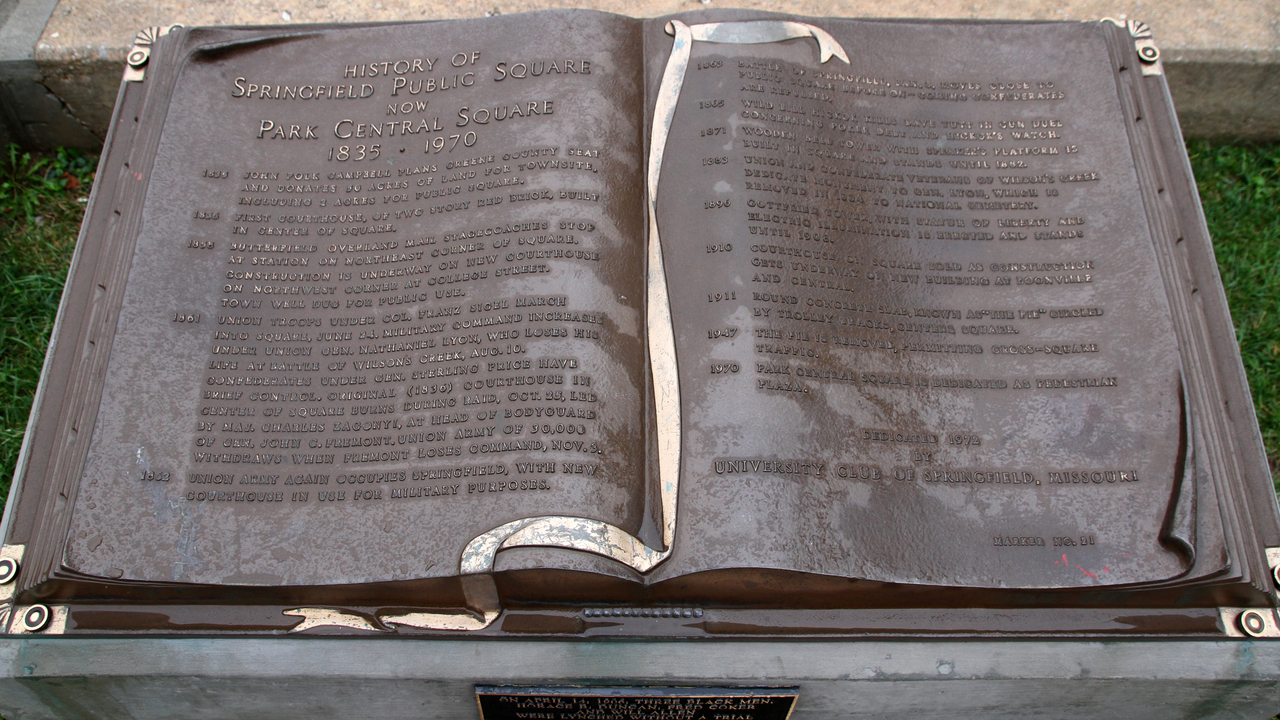 HISTORY OF
SPRINGFIELD PUBLIC SQUARE
NOW
PARK CENTRAL SQUARE
1835 · 1970
1835 JOHN POLK CAMPBELL PLANS GREENE COUNTY SEAT
AND DONATES 50 ACRES OF LAND FOR TOWNSITE,
INCLUDING 2 ACRES FOR PUBLIC SQUARE.
1836 FIRST COURTHOUSE, OF TWO STORY RED BRICK, BUILT
IN CENTER OF SQUARE.
1858 BUTTERFIELD OVERLAND MAIL STAGECOACHES STOP
AT STATION ON NORTHEAST CORNER OF SQUARE.
CONSTRUCTION IS UNDERWAY ON NEW COURTHOUSE
ON NORTHWEST CORNER AT COLLEGE STREET.
TOWN WELL DUG FOR PUBLIC USE.
1861 UNION TROOPS UNDER COL. FRANZ SIGEL MARCH
INTO SQUARE, JUNE 24. MILITARY COMMAND INCREASES
UNDER UNION GEN. NATHANIEL LYON, WHO LOSES HIS
LIFE AT BATTLE OF WILSONS CREEK, AUG. 10.
CONFEDERATES UNDER GEN. STERLING PRICE HAVE
BRIEF CONTROL. ORIGINAL (1836) COURTHOUSE IN
CENTER OF SQUARE BURNS DURING RAID, OCT. 25, LED
BY MAJ. CHARLES ZAGONYI, AT HEAD OF BODYGUARD
OF GEN. JOHN C. FREMONT. UNION ARMY OF 30,000
WITHDRAWS WHEN FREMONT LOSES COMMAND, NOV. 3.
1862 UNION ARMY AGAIN OCCUPIES SPRINGFIELD, WITH NEW
COURTHOUSE IN USE FOR MILITARY PURPOSES.
1863 BATTLE OF SPRINGFIELD, MOVES CLOSE TO
PUBLIC SQUARE BEFORE ON-COMING CONFEDERATES
ARE REPULSED.
1865 WILD BILL HICKOK KILLS DAVE TUTT IN GUN DUEL
CONCERNING POKER DEBT AND HICKOK'S WATCH.
1871 WOODEN BELL TOWER WITH SPEAKER'S PLATFORM IS
BUILT IN SQUARE AND STANDS UNTIL 1882.
1883 UNION AND CONFEDERATE VETERANS OF WILSON'S CREEK
DEDICATE MONUMENT TO GEN. LYON, WHICH IS
REMOVED TO NATIONAL CEMETERY.
1896 GOTTFRIED TOWER, WITH STATUE OF LIBERTY AND
ELECTRIC ILLUMINATION IS ERECTED AND STANDS
UNTIL
1910 COURTHOUSE ON SQUARE SOLD AS CONSTRUCTION
GETS UNDERWAY ON NEW BUILDING AT BOONVILLE
AND CENTRAL.
1911 ROUND CONCRETE SLAB, KNOWN AS "THE PIE" CIRCLED
BY TROLLEY TRACKS, CENTERS SQUARE.
1947 THE PIE IS REMOVED, PERMITTING CROSS-SQUARE
TRAFFIC.
1970 PARK CENTRAL SQUARE IS DEDICATED AS PEDESTRIAN
PLAZA.
DEDICATED 1972
BY
UNIVERSITY CLUB OF SPRINGFIELD, MISSOURI
MARKER NO. 21
ON APRIL 14, 1906, THREE BLACK MEN,
HORACE B. DUNCAN, FRED COKER
AND WILL ALLEN
WERE LYNCHED WITHOUT A TRIAL